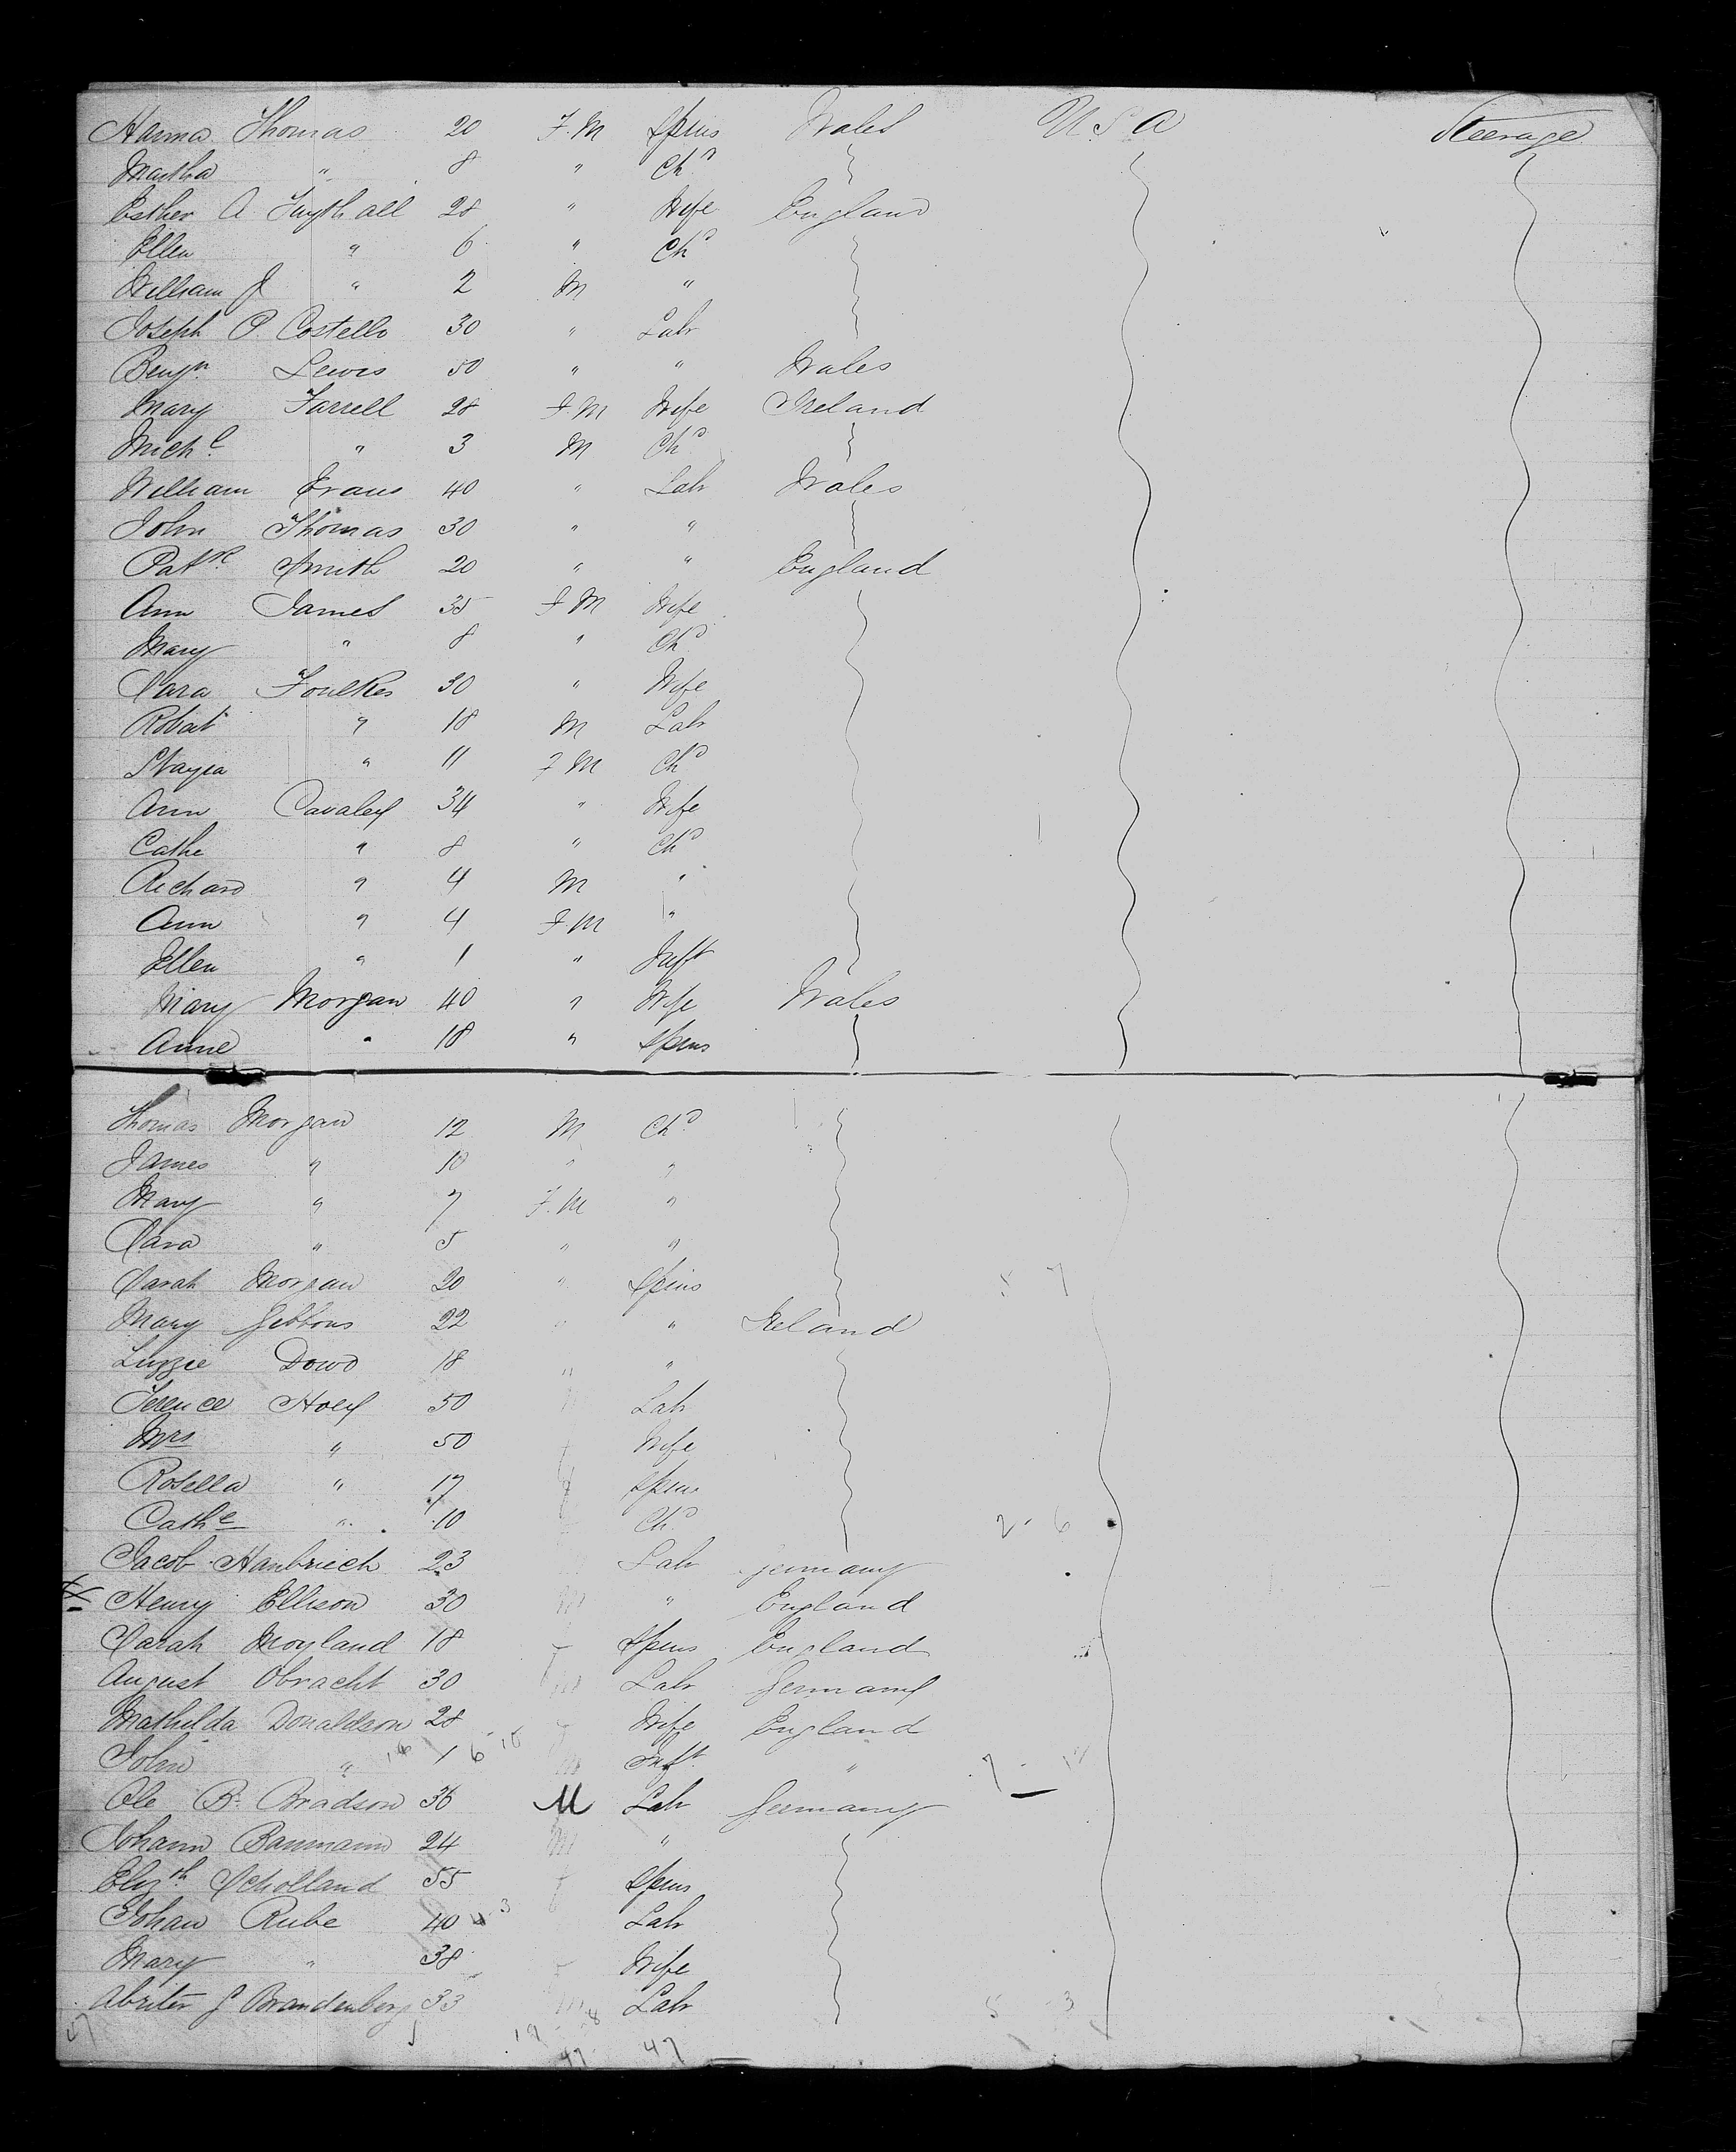 Hanna Thomas 20 F.M Spins Wales U S A Steerage
Martha " 8 " Chd
Esther A. Tuythall 28 " Wife England
Ellen " 6 " Chd
William J " 2 M "
Joseph P. Costello 30 " Labr
Benjn Lewis 50 " " Wales
Mary Farrell 28 F.M Wife Ireland
Michl " 3 M Chd
William Evans 40 " Labr Wales
John Thomas 30 " "
Patrk Smith 20 " " England
Ann James 35 F M Wife
Mary " 8 " Chd
Sara Foulkes 30 " Wife
Robert " 18 M Labr
" 11 F M Chd
Ann Cavaley 34 " Wife
Cathe " 8 " Chd
Richard " 4 M "
Ann " 4 F.M "
Ellen " 1 " Inft
Mary Morgan 40 " Wife Wales
Anne " 18 " Spins
Thomas Morgan 12 M Chd
James " 10 " "
Mary " 7 F.M "
Sara " 5 " "
Sarah Morgan 20 " Spins
Mary Gibbons 22 " " Ireland
Lizzie Dowd 18 " "
Terence Hoey 50 Labr
Mrs " 50 Wife
Rosella " 17 Spins
Cathe " 10 Chd 2-6
Jacob Hanbriech 23 Labr Germany
Henry Ellison 30 M " England
Sarah Moyland 18 Spins England
August Obracht 30 M Labr Germany
Mathilda Donaldson 28 Wife England
John " 1 M Inft "
Ole B. Bradson 36 M Labr Germany
Johann Baumann 24 M "
Elizth Scholland 55 f Spins
Johan Rube 40 Labr
Mary " 38 Wife
Brandenberg 33 M Labr
47 47